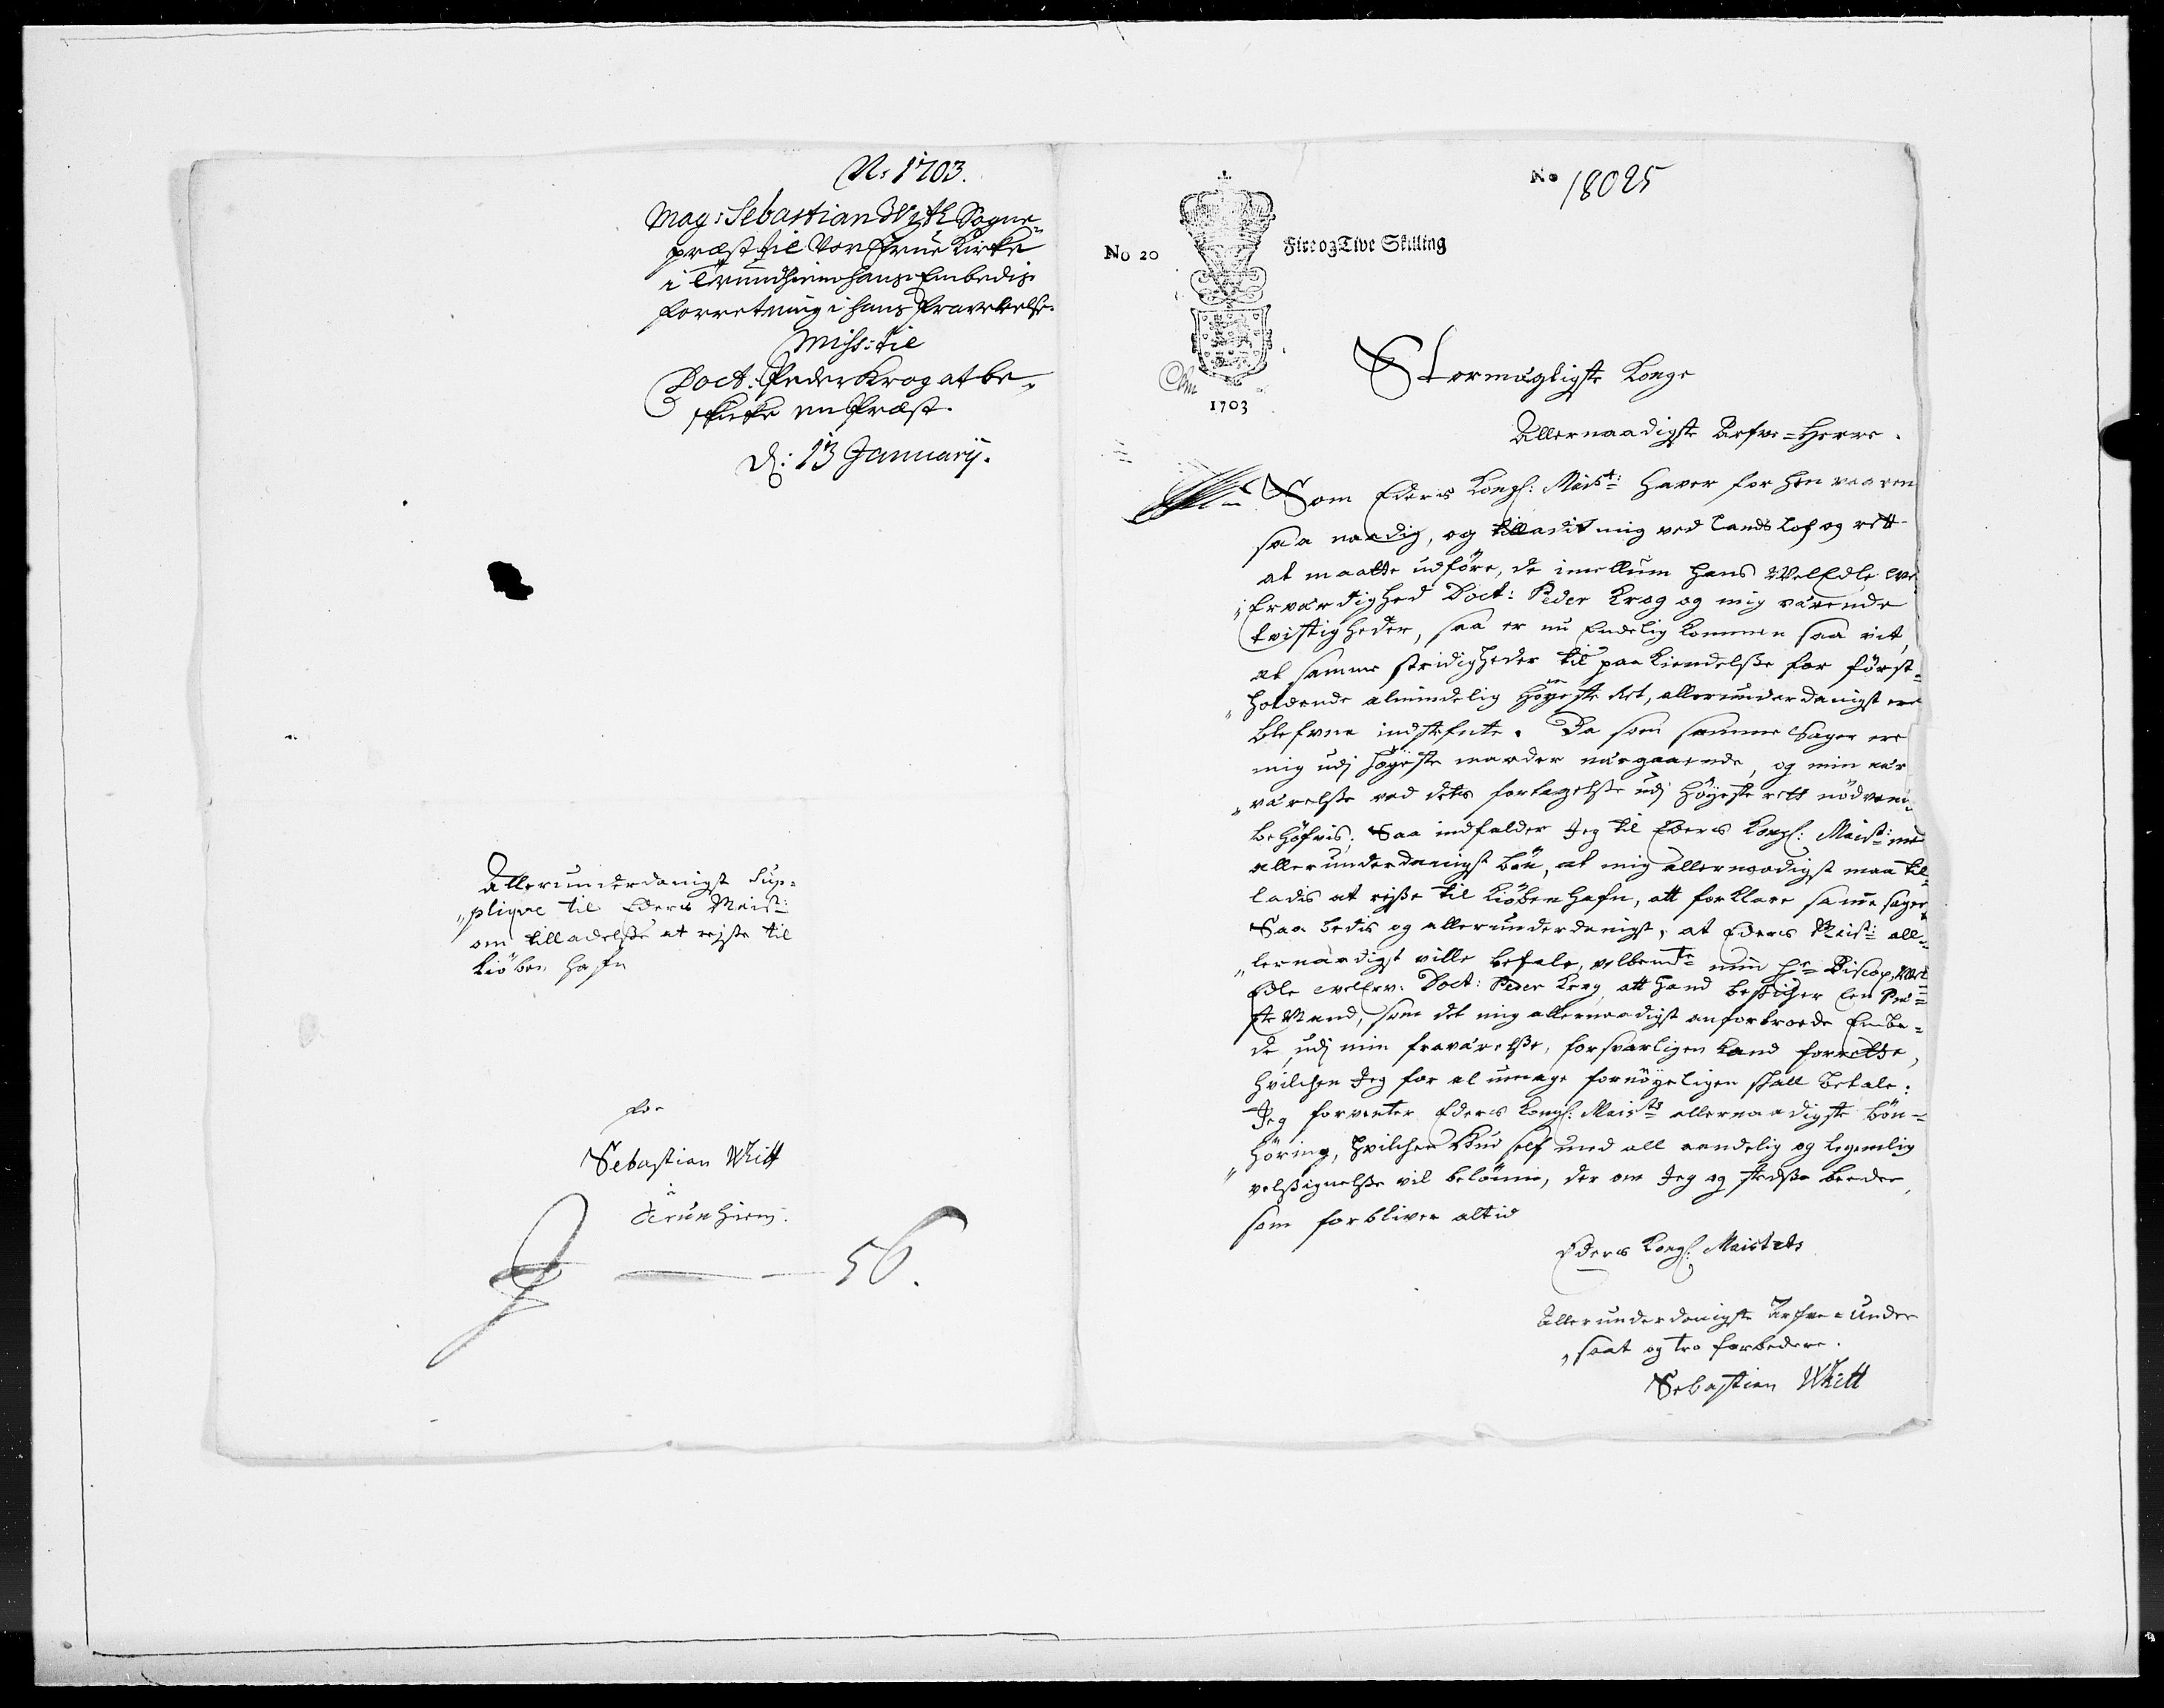 A: 1703.
Mag: Sebastian With Sogne¬
præst til Vor Frue Kirke
i Trundhiem hans Embedis
forretning i hans Fraverelse.
Miss: til
Doct: Peder Krog at be¬
skicke en Præst.
d: 13 January.
Allerunderdanigst Sup¬
plique til Eders Maist:
om tilladelsse at rejse til
Kiöben hafn
for
Sebastian Whitt
i
Trunhiem.
56.
No 18025
No 20
Fire og Tive Skilling
1703
Stormägtigste Konge
Allernaadigste Arfve-Herre.
Som Eders Kongl: Maist: haver for hen vaaren
saa naadig, og tilladit mig ved Lands Lof og rett
at maatte udföre, de imellum hans WelEdle
Erværdighed Doct: Peder Krog og mig værende
tvistigheder, saa er nu Endelig kommen saa vit,
at samme stridigheder til paa kiendelsse for först¬
holdende almindelig Höyeste Ret, allerunderdanigst ere
blefvne indstefnte. Da som samme Sager ere
mig udj högeste maader nærgaaende, og min nær
værelsse ved dets fortagelsse udj Höyeste rett nödven¬
behöfvis; Saa indfalder Jeg til Eders Kongl: Maist: med
allerunderdanigst bön, at mig allernaadigst maa til¬
ladis at rejsse til Kiöbenhafn, att forklare samme sager
Saa bedis og allerunderdanigst, at Eders Maist: all¬
lernaadigst ville befale, velbemte min Hr Biscop, Wel
Edle velErv: Doct: Peder Krog, att hand beskicher Een Præ¬
ste Mand, som det mig allernaadigst anfortroede Embe¬
de udj min fraværelsse, forsvarligen kand forrette,
hvilchen Jeg for al umage fornöyeligen skall betale:
Jeg forventer Eders Kongl: Maists allernaadigste bön¬
höring, hvilchen Gud self med all aandelig og legemlig
velsignelsse vil belönne, der om Jeg og stedsse beeder,
som forbliver altid
Eders Kongl: Maistets
Allerunderdanigste Arfve-Under
saat og tro forbedere.
Sebastian Whitt